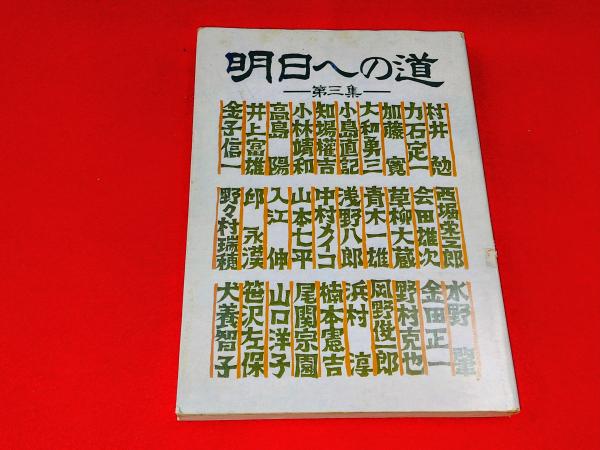 明日への道
第三集
村井 勉
力石定一
加藤 寛
大和勇三
小島直記
知場權吉
小林靖和
高島 陽
井上富雄
金子信一
西堀栄三郎
会田雄次
草柳大蔵
青木一雄
浅野八郎
中村メイコ
山本七平
入江 伸
邱 永漢
野々村瑞穂
水野 肇
金田正一
野村克也
風野俊一郎
浜村 淳
楠本憲吉
尾関宗園
山口洋子
笹沢左保
犬養智子